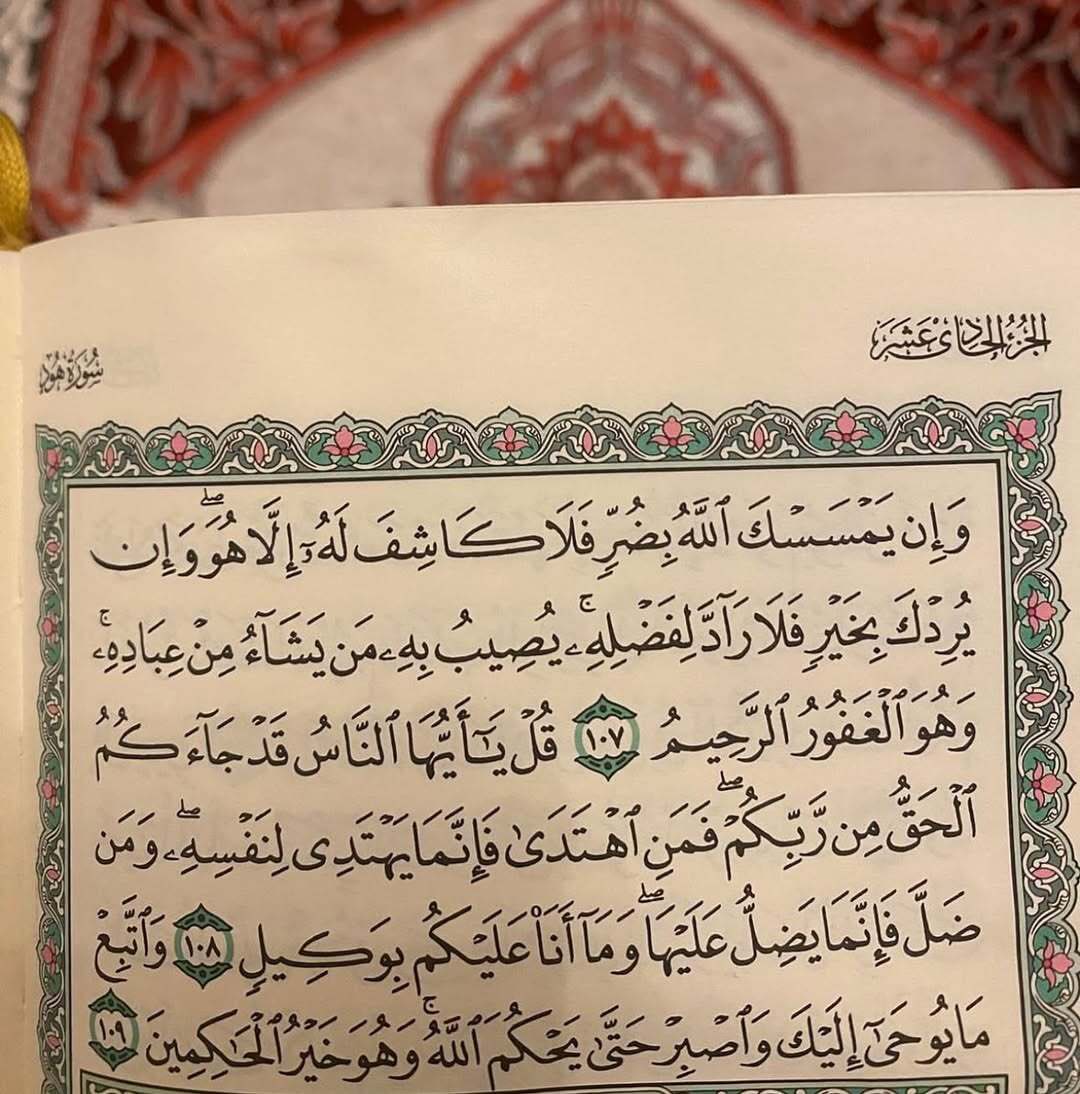 الجزء الحادي عشر
سورة هود
وَإِن يَمْسَسْكَ ٱللَّهُ بِضُرٍّ فَلَا كَاشِفَ لَهُۥٓ إِلَّا هُوَۖ وَإِن
يُرِدْكَ بِخَيْرٍ فَلَا رَآدَّ لِفَضْلِهِۦۚ يُصِيبُ بِهِۦ مَن يَشَآءُ مِنْ عِبَادِهِۦۚ
وَهُوَ ٱلْغَفُورُ ٱلرَّحِيمُ ١٠٧ قُلْ يَـٰٓأَيُّهَا ٱلنَّاسُ قَدْ جَآءَكُمُ
ٱلْحَقُّ مِن رَّبِّكُمْۖ فَمَنِ ٱهْتَدَىٰ فَإِنَّمَا يَهْتَدِى لِنَفْسِهِۦۖ وَمَن
ضَلَّ فَإِنَّمَا يَضِلُّ عَلَيْهَاۖ وَمَآ أَنَا۠ عَلَيْكُم بِوَكِيلٍ ١٠٨ وَٱتَّبِعْ
مَا يُوحَىٰٓ إِلَيْكَ وَٱصْبِرْ حَتَّىٰ يَحْكُمَ ٱللَّهُۚ وَهُوَ خَيْرُ ٱلْحَـٰكِمِينَ ١٠٩